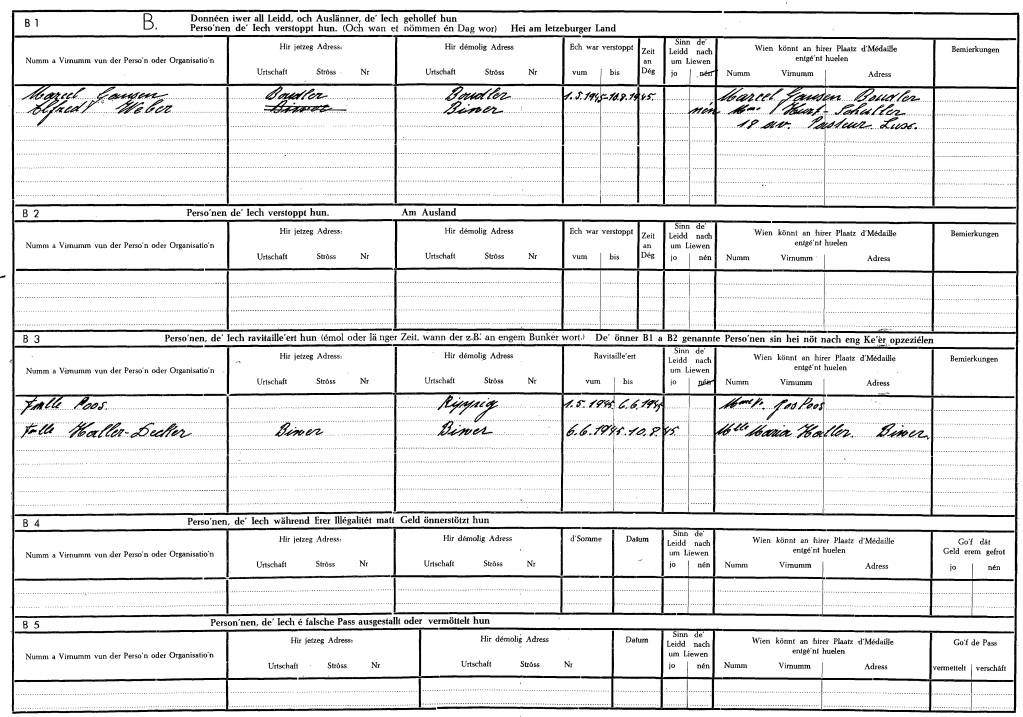 B 1 B. Donnéen iwer all Leidd, och Auslänner, de' Iech gehollef hun
Perso'nen de' Iech verstoppt hun. (Och wan et nömmen én Dag wor) Hei am letzeburger Land
Numm a Virnumm vun der Perso'n oder Organisatio'n
Hir jetzeg Adress:
Urtschaft Ströss Nr
Hir démolig Adress
Urtschaft Ströss Nr
Ech war verstoppt
vum bis
Zeit
an
Dég
Sinn de'
Leidd nach
um Liewen
jo nén
Wien könnt an hirer Plaatz d'Médaille
entgé'nt huelen
Numm Virnumm Adress
Bemierkungen
Marcel Gansen Boudler Boudler 1.5.1945 10.8.1945. Marcel Gansen Boudler
Weber Biwer Biwer nén Mme Schuller
18 av. Pasteur Lux.
B 2 Perso'nen de' Iech verstoppt hun. Am Ausland
Numm a Virnumm vun der Perso'n oder Organisatio'n
Hir jetzeg Adress:
Urtschaft Ströss Nr
Hir démolig Adress
Urtschaft Ströss Nr
Ech war verstoppt
vum bis
Zeit
an
Dég
Sinn de'
Leidd nach
um Liewen
jo nén
Wien könnt an hirer Plaatz d'Médaille
entgé'nt huelen
Numm Virnumm Adress
Bemierkungen
B 3 Perso'nen, de' Iech ravitaille'ert hun (émol oder länger Zeit, wann der z.B. an engem Bunker wort.) De' önner B1 a B2 genannte Perso'nen sin hei nöt nach eng Ke'er opzeziélen
Numm a Virnumm vun der Perso'n oder Organisatio'n
Hir jetzeg Adress:
Urtschaft Ströss Nr
Hir démolig Adress
Urtschaft Ströss Nr
Ravitaille'ert
vum bis
Sinn de'
Leidd nach
um Liewen
jo nén
Wien könnt an hirer Plaatz d'Médaille
entgé'nt huelen
Numm Virnumm Adress
Bemierkungen
Fmlle Poos. Rippig 1.5.1945 6.6.1945 Jos Poos
Fmlle Haller-Decker Biwer Biwer 6.6.1945. 10.8.45. Mlle Maria Haller. Biwer.
B 4 Perso'nen, de' Iech während Erer Illégalitét matt Geld önnerstötzt hun
Numm a Virnumm vun der Perso'n oder Organisatio'n
Hir jetzeg Adress:
Urtschaft Ströss Nr
Hir démolig Adress
Urtschaft Ströss Nr
d'Somme
Datum
Sinn de'
Leidd nach
um Liewen
jo nén
Wien könnt an hirer Plaatz d'Médaille
entgé'nt huelen
Numm Virnumm Adress
Go'f dát
Geld erem gefrot
jo nén
B 5 Person'nen, de' Iech é falsche Pass ausgestallt oder vermöttelt hun
Numm a Virnumm vun der Perso'n oder Organisatio'n
Hir jetzeg Adress:
Urtschaft Ströss Nr
Hir démolig Adress
Urtschaft Ströss Nr
Datum
Sinn de'
Leidd nach
um Liewen
jo nén
Wien könnt an hirer Plaatz d'Médaille
entgé'nt huelen
Numm Virnumm Adress
Go'f de Pass
vermettelt verschäft